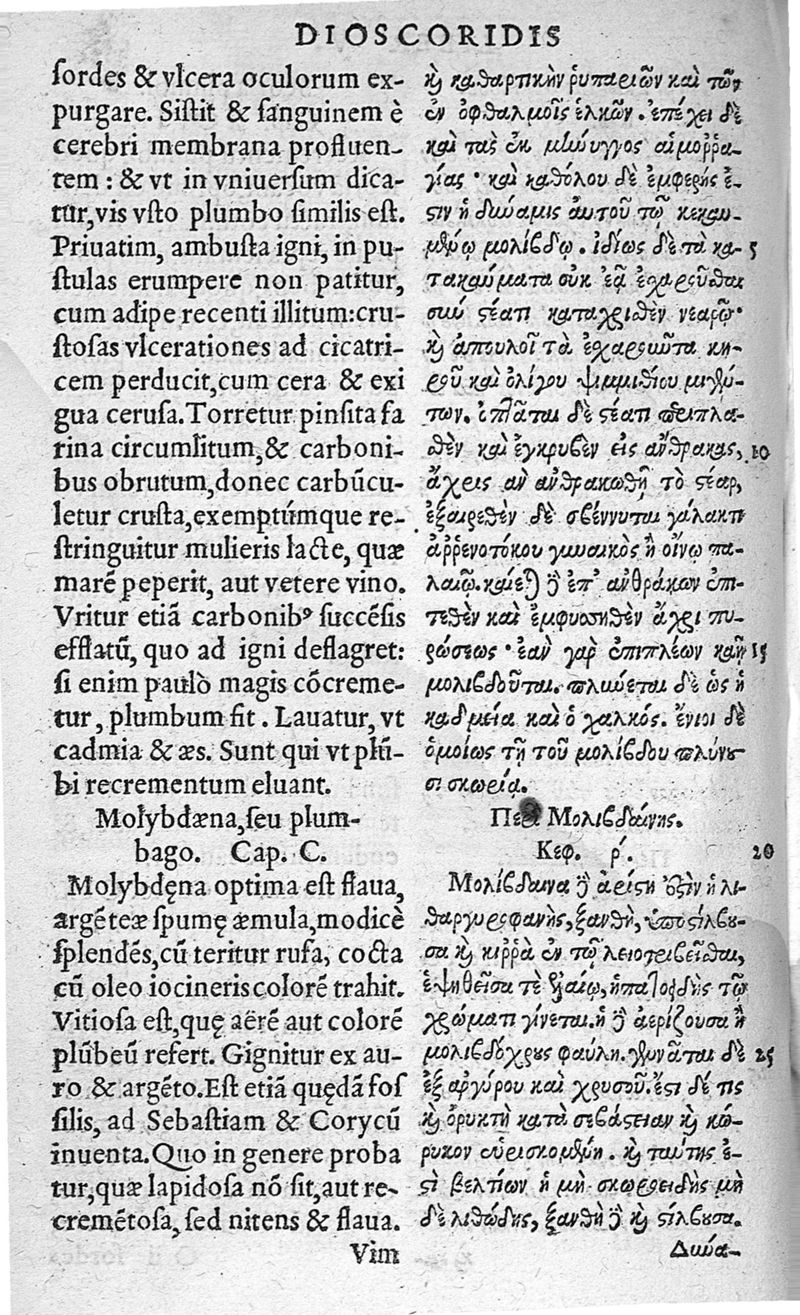 DIOSCORIDIS
sordes & vlcera oculorum ex-
purgare. Sistit & sanguinem è
cerebri membrana profluen-
tem : & vt in vniuersum dica-
tur,vis vsto plumbo similis est.
Priuatim, ambusta igni, in pu-
stulas erumpere non patitur,
cum adipe recenti illitum:cru-
stosas vlcerationes ad cicatri-
cem perducit,cum cera & exi
gua cerusa.Torretur pinsita fa
rina circumlitum,& carboni-
bus obrutum,donec carbũcu-
letur crusta,exemptúmque re-
stringuitur mulieris lacte, quæ
marẽ peperit, aut vetere vino.
Vritur etiã carbonibꝰ succẽsis
efflatũ, quo ad igni deflagret:
si enim paulò magis cõcreme-
tur, plumbum fit. Lauatur, vt
cadmia & æs. Sunt qui vt plũ-
bi recrementum eluant.
Molybdæna,seu plum-
bago. Cap. C.
Molybdęna optima est flaua,
argẽteæ spumę æmula,modicè
splendẽs,cũ teritur rufa, cocta
cũ oleo iocineris colorẽ trahit.
Vitiosa est,quę aërẽ aut colorẽ
plũbeũ refert. Gignitur ex au-
ro & argẽto.Est etiã quędã fos
silis, ad Sebastiam & Corycũ
inuenta.Quo in genere proba
tur,quæ lapidosa nõ sit,aut re-
cremẽtosa, sed nitens & flaua.
Vim
καὶ καθαρτικὴν ῥυπαριῶν καὶ τῶν
ἐν ὀφθαλμοῖς ἑλκῶν. ἐπέχει δὲ
καὶ τὰς ἐκ μηνίγγος αἱμοῤῥα-
γίας · καὶ καθόλου δὲ ἐμφερής ἐ-
στιν ἡ δύναμις αὐτοῦ τῷ κεκαυ-
μένῳ μολίβδῳ. ἰδίως δὲ τὰ κα- 5
τακαύματα οὐκ ἐᾷ ἐχαροῦσθαι
σὺν στέατι καταχρισθὲν νεαρῷ·
καὶ ἀπουλοῖ τὰ ἐσχαρῶντα κη-
ροῦ καὶ ὀλίγου ψιμμιθίου μιγέν-
των. ὀπτᾶται δὲ στέατι περιπλα-
σθὲν καὶ ἐγκρυβὲν εἰς ἄνθρακας, 10
ἄχρις ἂν ἀνθρακωθῇ τὸ στέαρ,
ἐξαιρεθὲν δὲ σβέννυται γάλακτι
ἀῤῥενοτόκου γυναικὸς ἢ οἴνῳ πα-
λαιῷ. καίεται δὲ ἐπ' ἀνθράκων ἐπι-
τεθὲν καὶ ἐμφυσηθὲν ἄχρι πυ-
ρώσεως · ἐὰν γὰρ ἐπιπλέων καῇ 15
μολιβδοῦται. πλύνεται δὲ ὡς ἡ
καδμεία καὶ ὁ χαλκός. ἔνιοι δὲ
ὁμοίως τῇ τοῦ μολίβδου πλύνου
σι σκωρίᾳ.
Περὶ Μολιβδαίνης.
Κεφ. ρ'. 20
Μολίβδαινα δὲ ἀρίστη ἐστὶν ἡ λι-
θαργυροφανὴς, ξανθὴ, ὑποστίλβου-
σα καὶ κιῤῥὰ ἐν τῷ λειοτριβεῖσθαι,
ἑψηθεῖσα τὲ ἐλαίῳ, ἡπατοειδὴς τῷ
χρώματι γίνεται. ἡ δὲ ἀερίζουσα ἢ
μολιβδόχρους φαύλη. γεννᾶται δὲ 25
ἐξ ἀργύρου καὶ χρυσοῦ. ἔστι δέ τις
καὶ ὀρυκτὴ κατὰ σεβάστειαν καὶ κώ-
ρυκον εὑρισκομένη. καὶ ταύτης ἐ-
στὶ βελτίων ἡ μὴ σκωριοειδὴς μὴ
δὲ λιθώδης, ξανθὴ δὲ καὶ στίλβουσα.
Δύνα-